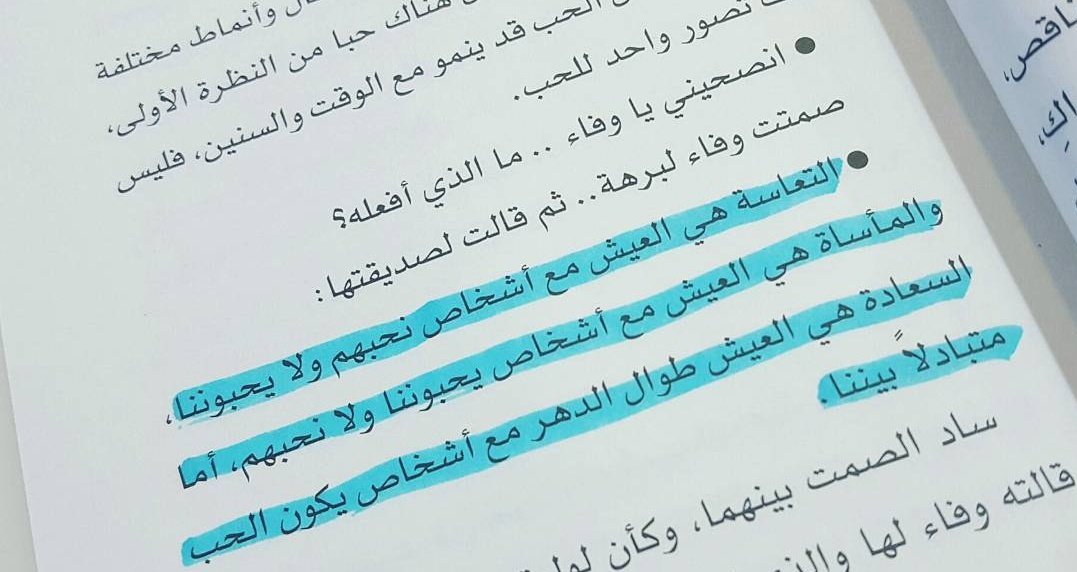 وأنماط مختلفة
هناك حبا من النظرة الأولى،
الحب قد ينمو مع الوقت والسنين، فليس
تصور واحد للحب.
● انصحيني يا وفاء .. ما الذي أفعله؟
صمتت وفاء لبرهة.. ثم قالت لصديقتها:
● التعاسة هي العيش مع أشخاص نحبهم ولا يحبوننا،
والمأساة هي العيش مع أشخاص يحبوننا ولا نحبهم، أما
السعادة هي العيش طوال الدهر مع أشخاص يكون الحب
متبادلاً بيننا.
ساد الصمت بينهما، وكأن
قالته وفاء لها
ناقص،